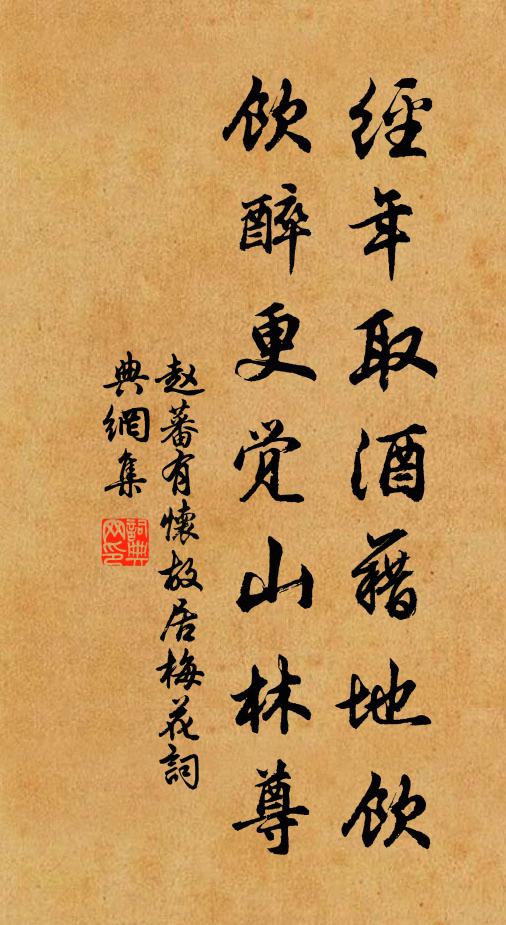 經年取酒藉地飲
飲醉更觉山林尊
赵蕃有懷故居梅花詞
典網集
詞典
网印